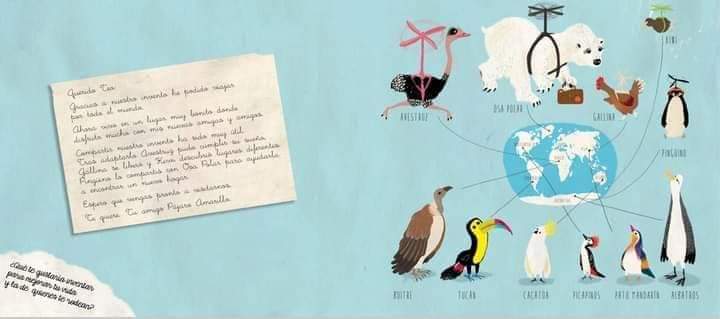 Querido Teo:
Gracias a nuestro invento he podido viajar
por todo el mundo.
Ahora vivo en un lugar muy bonito donde
disfruto mucho con mis nuevas amigas y amigos.
Compartir nuestro invento ha sido muy útil.
Tras adaptarlo Avestruz pudo cumplir su sueño,
Gallina se liberó y Kiwi descubrió lugares diferentes.
Pingüino lo compartió con Osa Polar para ayudarla
a encontrar un nuevo hogar.
Espero que vengas pronto a visitarnos.
Te quiere, Tu amigo Pájaro Amarillo.
¿Qué te gustaría inventar
para mejorar tu vida
y la de quienes te rodean?
KIWI
AVESTRUZ
OSA POLAR
GALLINA
PINGÜINO
BUITRE
TUCÁN
CACATÚA
PICAPINOS
PATO MANDARÍN
ALBATROS